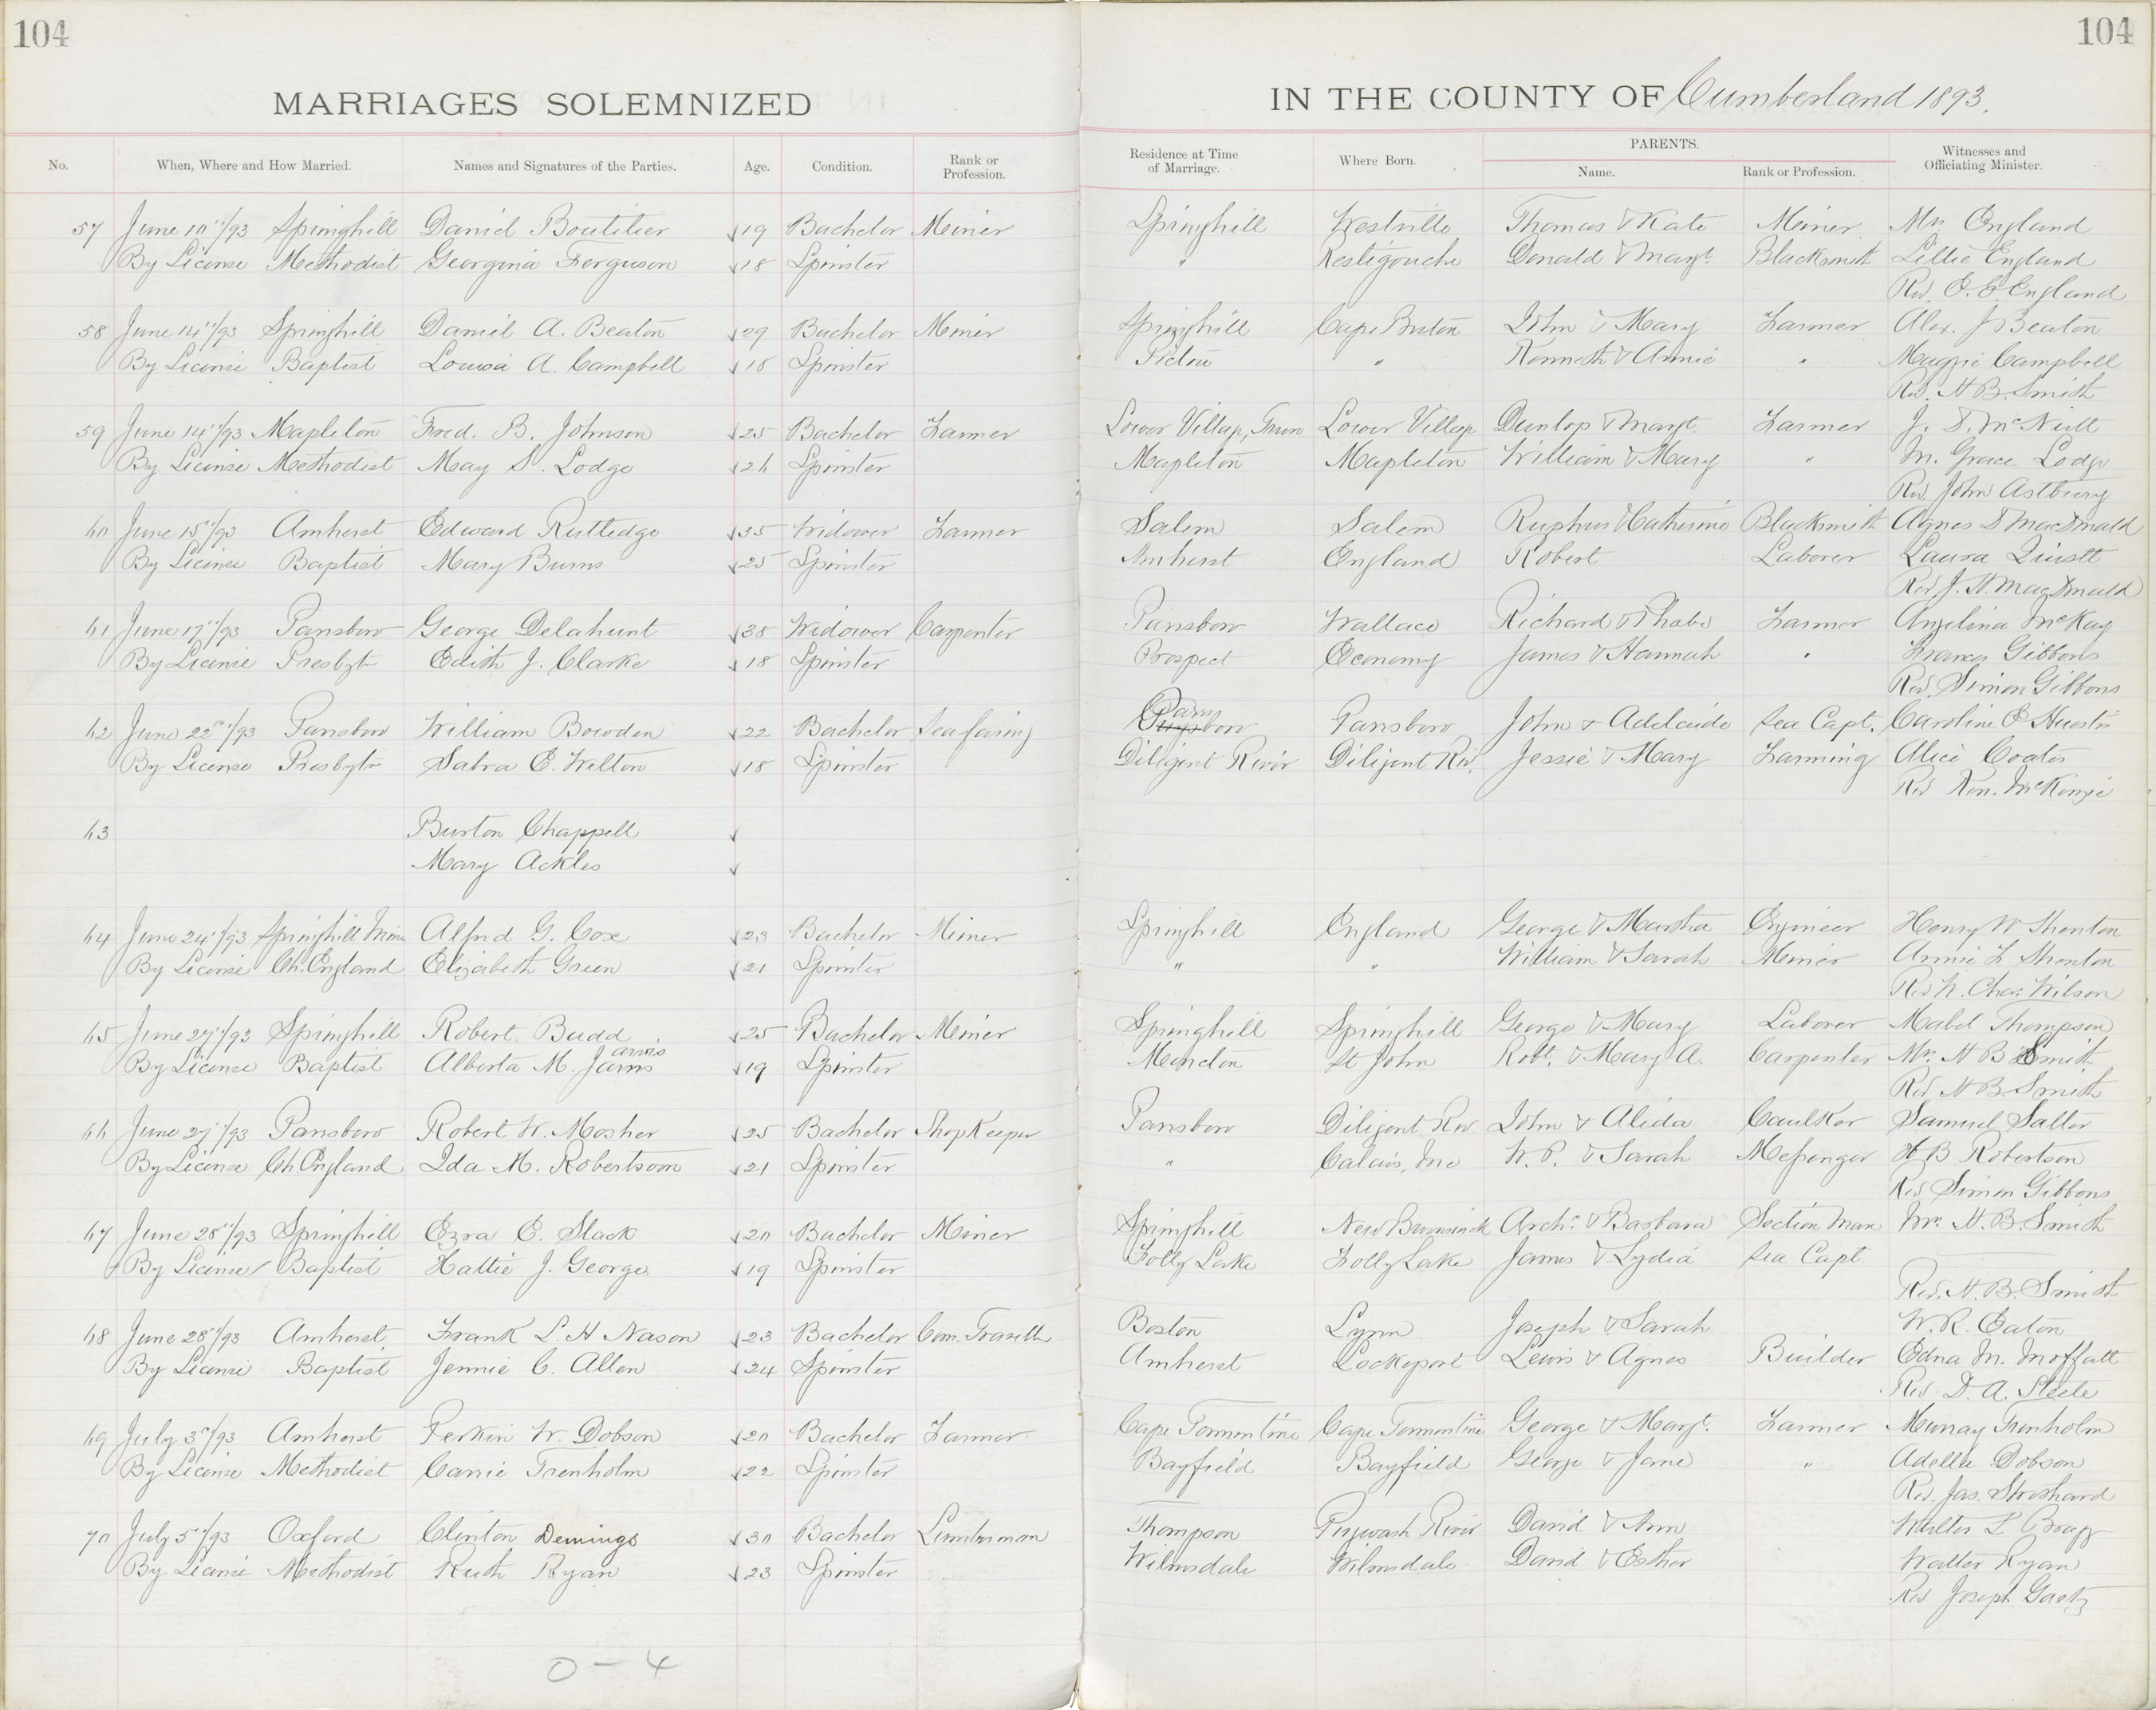 104
104
MARRIAGES SOLEMNIZED
IN THE COUNTY OF Cumberland 1893.
No. When, Where and How Married. Names and Signatures of the Parties. Age. Condition. Rank or Profession. Residence at Time of Marriage. Where Born. PARENTS. Name. Rank or Profession. Witnesses and Officiating Minister.
57 June 10"/93 Springhill Daniel Boutilier 19 Bachelor Miner Springhill Westville Thomas & Kate Miner Mrs England
By License Methodist Georgina Ferguson 18 Spinster " Restigouche Donald & Margt. Blacksmith Lillie England
Rev. O. E. England
58 June 14"/93 Springhill Daniel A. Beaton 29 Bachelor Miner Springhill Cape Breton John & Mary Farmer Alex. J Beaton
By License Baptist Louisa A. Campbell 18 Spinster Pictou " Kenneth & Annie " Maggie Campbell
Rev. H. B. Smith
59 June 14"/93 Mapleton Fred. B. Johnson 25 Bachelor Farmer Lower Village, Truro Lower Village Dunlop & Margt. Farmer J. D. McNutt
By License Methodist May S. Lodge 26 Spinster Mapleton Mapleton William & Mary " M. Grace Lodge
Rev. John Astbury
60 June 15"/93 Amherst Edward Rutledge 35 Widower Farmer Salem Salem Ruphus & Catherine Blacksmith Agnes D MacDonald
By License Baptist Mary Burns 25 Spinster Amherst England Robert Laborer Laura
Rev J. H. MacDonald
61 June 17"/93 Parrsboro George Delahunt 38 Widower Carpenter Parrsboro Wallace Richard & Phabe Farmer Angelina McKay
By License Presbytr Edith J. Clarke 18 Spinster Prospect Economy James & Hannah " Frances Gibbons
Rev. Simon Gibbons
62 June 22nd/93 Parrsboro William Bowden 22 Bachelor Seafaring Parrsboro Parrsboro John & Adelaide Sea Capt. Caroline E Huestis
By License Presbytr Sabra E. Welton 18 Spinster Diligent River Diligent Riv. Jessie & Mary Farming Alice Coates
Rev Ron. McKenzie
63 Burton Chappell
Mary Ackles
64 June 24"/93 Springhill Mines Alfred G. Cox 23 Bachelor Miner Springhill England George & Martha Engineer Henry W Shenton
By License Ch. England Elizabeth Green 21 Spinster " " William & Sarah Miner Annie L Shenton
Rev W. Chas. Wilson
65 June 27"/93 Springhill Robert Budd 25 Bachelor Miner Springhill Springhill George & Mary Laborer Mabel Thompson
By License Baptist Alberta M. Jarvis arvis 19 Spinster Moncton St John Robt. & Mary A. Carpenter Mrs. H B Smith
Rev H B Smith
66 June 27"/93 Parrsboro Robert W. Mosher 25 Bachelor Shop Keeper Parrsboro Diligent Riv John & Alida Caulker Samuel Salter
By License Ch England Ida M. Robertson 21 Spinster " Calais, Me W. P. & Sarah Messenger H. B Robertson
Rev Simon Gibbons
67 June 28"/93 Springhill Ezra E. Slack 20 Bachelor Miner Springhill New Brunswick Archd. & Barbara Section Man Mrs. H. B. Smith
By License Baptist Hattie J. George 19 Spinster Folly Lake Folly Lake James & Lydia Sea Capt.
Rev. H. B. Smith
68 June 28"/93 Amherst Frank L. H Nason 23 Bachelor Com. Traveller Boston Lynn Joseph & Sarah W. R. Eaton
By License Baptist Jennie C. Allen 24 Spinster Amherst Lockeport Lewis & Agnes Builder Edna M. Moffatt
Rev. D. A. Steele
69 July 3rd/93 Amherst Perkin W. Dobson 20 Bachelor Farmer Cape Tormentine Cape Tormentine George & Margt. Farmer Murray Trenholm
By License Methodist Carrie Trenholm 22 Spinster Bayfield Bayfield George & Jane " Adella Dobson
Rev. Jas. Strothard
70 July 5"/93 Oxford Clinton Demings 30 Bachelor Lumberman Thompson Pugwash River David & Ann Walter L Bragg
By License Methodist Ruth Ryan 23 Spinster Wilmsdale Wilmsdale David & Esther Walter Ryan
Rev Joseph Gaetz
0 – 4